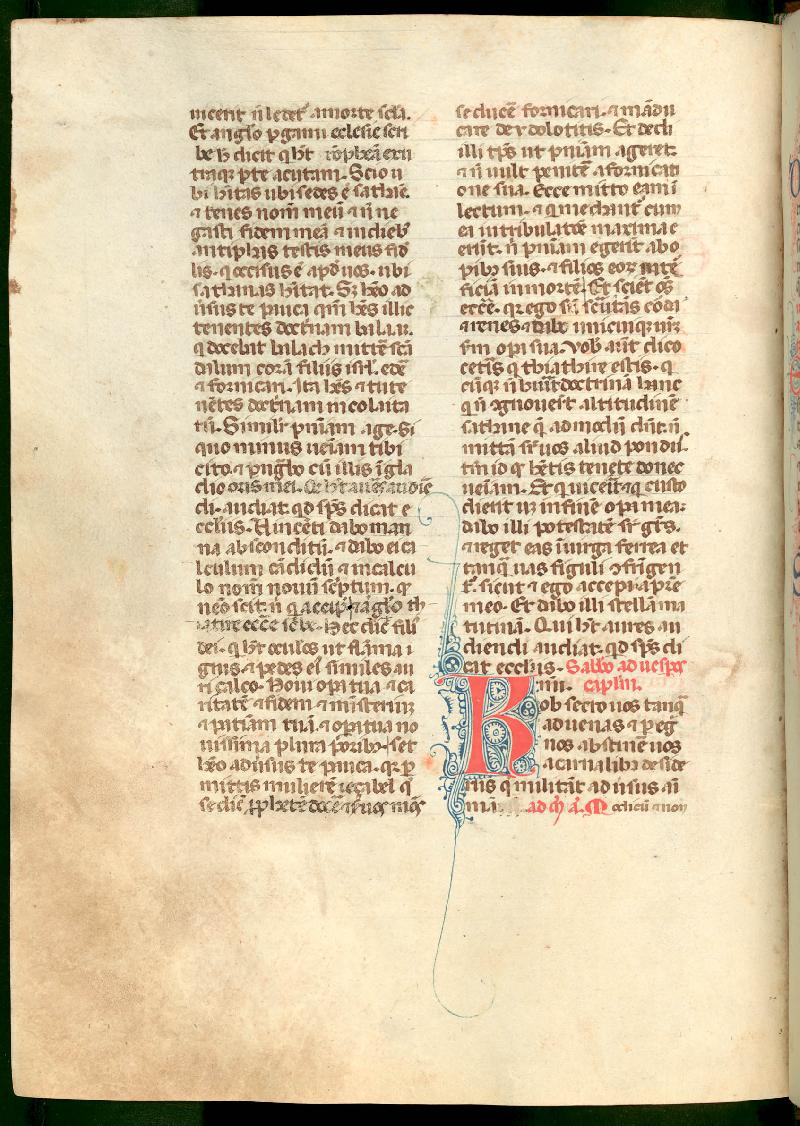 uicerit ñ ledet᷑ a morte scďa.
Et anglo ꝑgami ecclesie scri
be h̄ dicit q̄ hꝫ rōpheā ex u
traqꝫ ꝑte acutam. Scio u
bi hītas ubi sedes ē sathane.
⁊ tenes nom̄ meū ⁊ ñ ne
gasti fidem meā ⁊ in dieb᷒
antiphas testis meus fid
lis. q̇ occisus ē apd̄ uos. ubi
sathanas hītat. Sꝫ hēo ad
uīsus te pauca qm̄ hēs illic
tenentes doctnam balaā.
q̇ docebat balach mittē scā
dalum corā filiis isrl̄. edē
⁊ fornicari. Ita hēs ⁊ tu te
nētes doctnam nicolaita
rū. Simil᷑r pn̄iam age. Si
quo minus ueniam tibi
cito. ⁊ pugbo cū illis ī gla
dio oris mei. Q̇ hꝫ aures audiē
di. audiat. qd̄ sp̄s dicat e
ccl̄iis. Uincēti dabo man
na absconditū. ⁊ dabo ei ca
lculum cādidū ⁊ in calcu
lo nom̄ nouū sc̄ptum. qḋ
nēo scit. ñ q̇ accipit. ⁊ anglo th
iatire eccl̄e sc̄be. Hec dic̄ fili᷒
dei. q̇ hꝫ oculos ut flāma i
gnis. ⁊ pedes ei᷒ similes au
ricalco. Noui oꝑa tua ⁊ ca
ritatē ⁊ fidem ⁊ mīsteriū
⁊ patiam tuā. ⁊ oꝑa tua no
uissima plura p̄orib᷒. set
hēo aduīsus te pauca. qꝛ ꝑ
mittis mulierē iezabel q̄
se dic̄ ꝓphetē docē ⁊ suos m̄os
seducē fornicari. ⁊ mādu
care de ydolotitis. Et dedi
illi tp̄s ut pn̄iam ageret.
⁊ ñ uult penitē a fornicati
one sua. Ecce mitto eam ī
lectum. ⁊ q̇ mechant᷑ cum
ea in tribulatōe maxima e
rūt. ñ pn̄iam egerīt ab o
ꝑib᷒ suis. ⁊ filios eoꝝ inte
ficiā in morte. Et sciēt oēs
eccē. qꝛ ego sū scrutās cordi
⁊ renes. ⁊ dabo unicuiqꝫ ur̄m
sm̄ oꝑa sua. Uob᷒ aut̄ dico
cetīs q̇ thiatire estis. q̇
cūqꝫ ñ hūnt doctrinā hanc
q̇ ñ ꝯgnouert altitudinē
sathane q̄ ad modū dn̄t. ñ
mittā sr̄ uos aliud pondu᷒.
tm̄ id qḋ hētis tenete donec
ueniam. Et q̇ uic̄it ⁊ q̇ custo
dierit usꝫ in finē oꝑa mea.
dabo illi potestatē sr̄ gn̄s.
⁊ reget eas ī uirga ferrea et
tanq̄ uas figuli ꝯfrīgen
t᷑. sicut ⁊ ego accepi a pr̄e
meo. Et dabo illi stellā ma
tutinā. Qui hꝫ aures au
diendi audiat. qd̄ sp̄s di
cat eccl̄iis. Sabb̄o ad uesꝑas
capl̄m.
Kr̄mi.
ob secro uos tanq̄
aduenas ⁊ ꝑeg̓
nos abstinē uos
a carnalib᷒ deside
riis q̄ militāt aduīsus ai
mā. ad